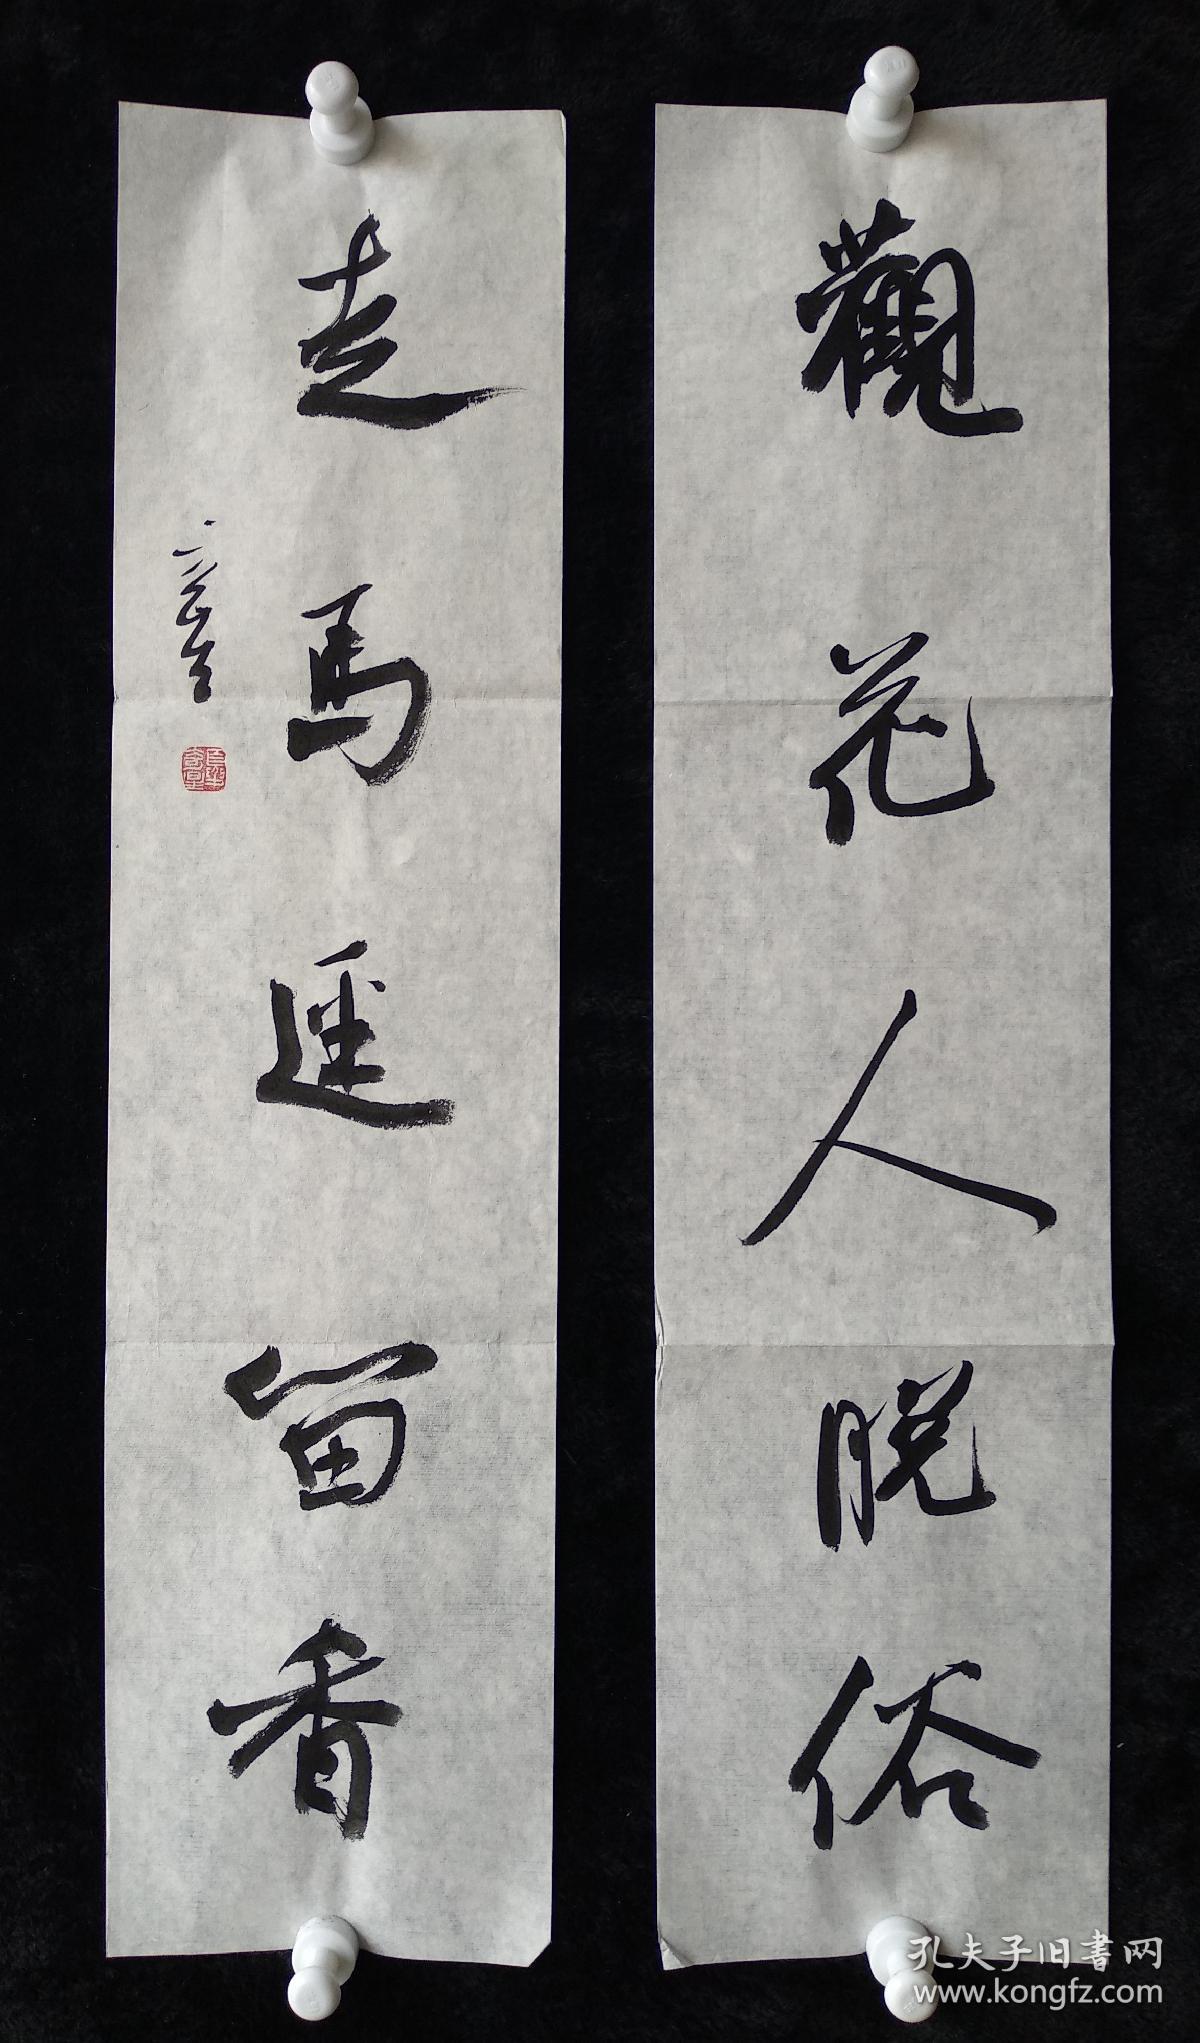 觀花人脱俗
走馬遥留香
孔夫子旧書网
www.kongfz.com